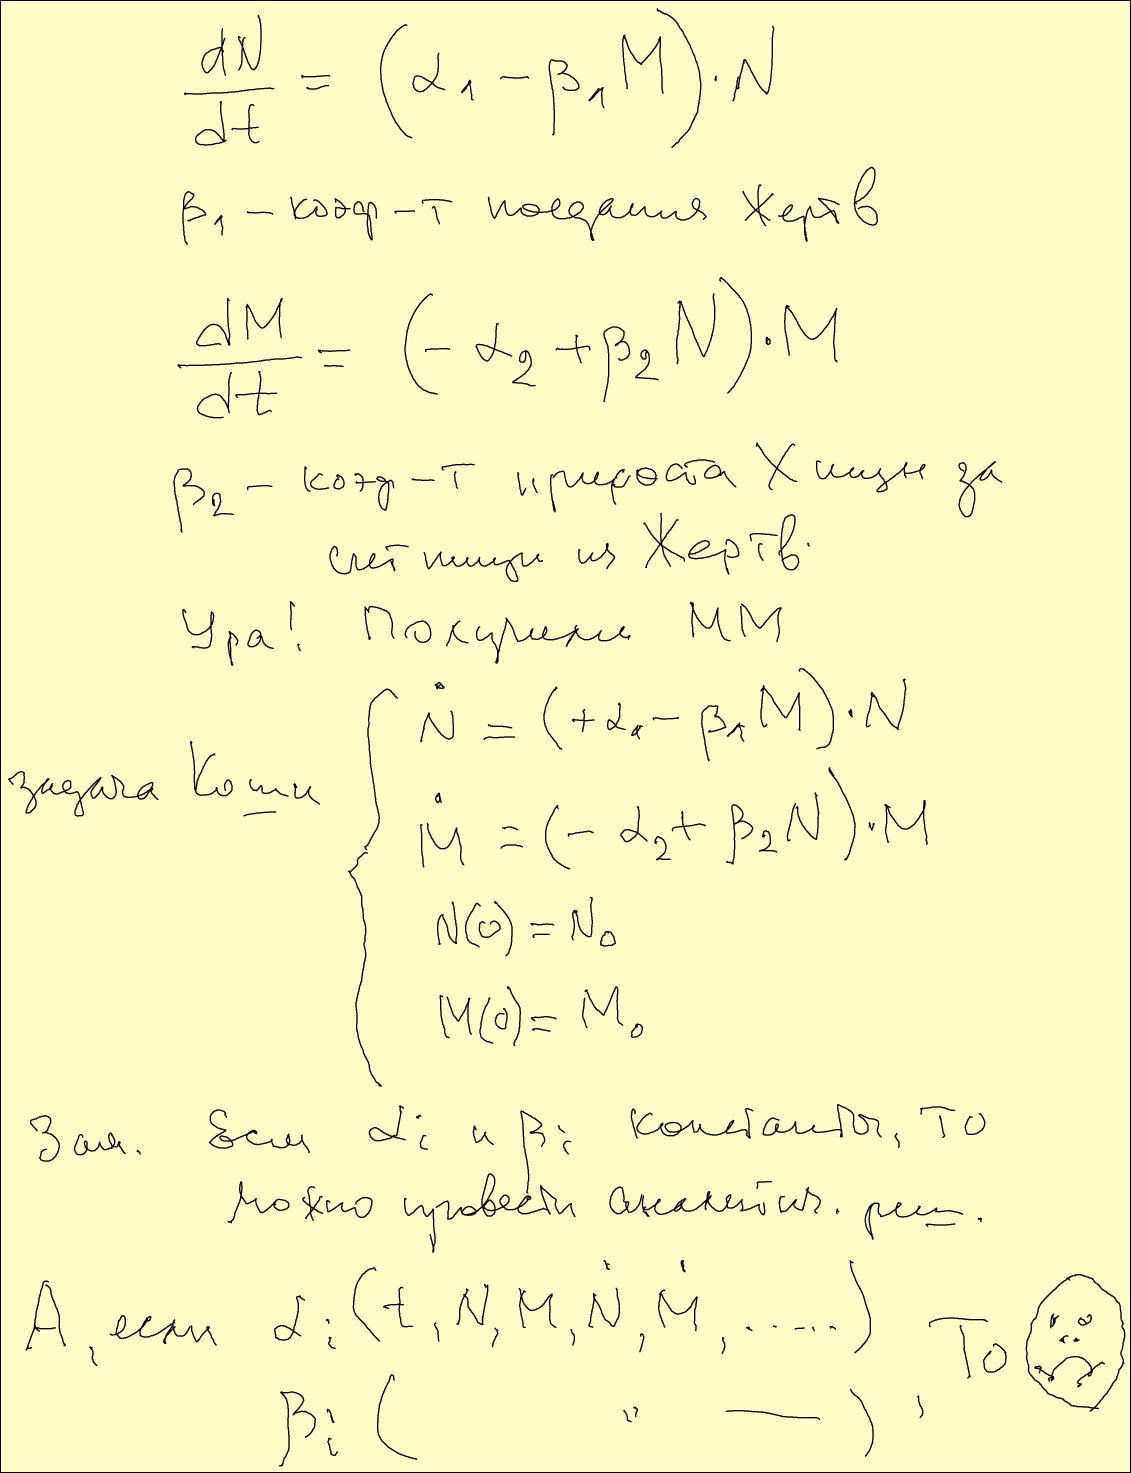 dN/dt = (α₁ - β₁M)·N
β₁ - коэф-т поедания Жертв
dM/dt = (-α₂ + β₂N)·M
β₂ - коэф-т прироста Хищн за
счет пищи из Жертв.
Ура! Получили ММ
задача Коши
Ṅ = (+α₁ - β₁M)·N
Ṁ = (-α₂ + β₂N)·M
N(0) = N₀
M(0) = M₀
Зам. Если αᵢ и βᵢ константы, то
можно провести аналитич. реш.
А, если αᵢ(t, N, M, Ṅ, Ṁ, .....)
βᵢ( " — ), то